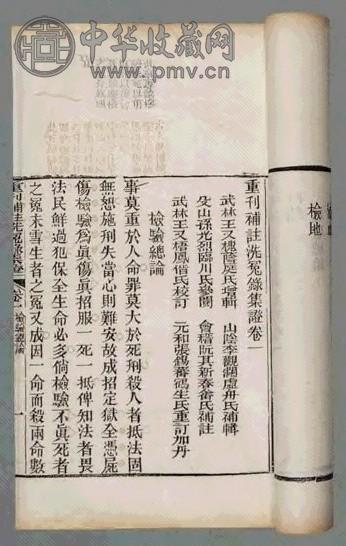 中华收藏网
www.pmv.cn
檢地
重刊補註洗冤錄集證卷一
武林王又槐蔭庭氏增輯 山陰李觀瀾虛舟氏補輯
山孫光烈臨川氏參閱 會稽阮其新春畬氏補註
武林王又梧鳳偕氏校訂 元和張錫蕃 生氏重訂加丹
檢驗總論
事莫重於人命罪莫大於死刑殺人者抵法固
無恕施刑失當心則難安故成招定獄全憑屍
傷檢驗爲眞傷眞招服一死一抵俾知法者畏
法民鮮過犯保全生命必多倘檢驗不眞死者
之冤未雪生者之冤又成因一命而殺兩命數
重刊補註洗冤錄集證 卷一 檢驗總論 一